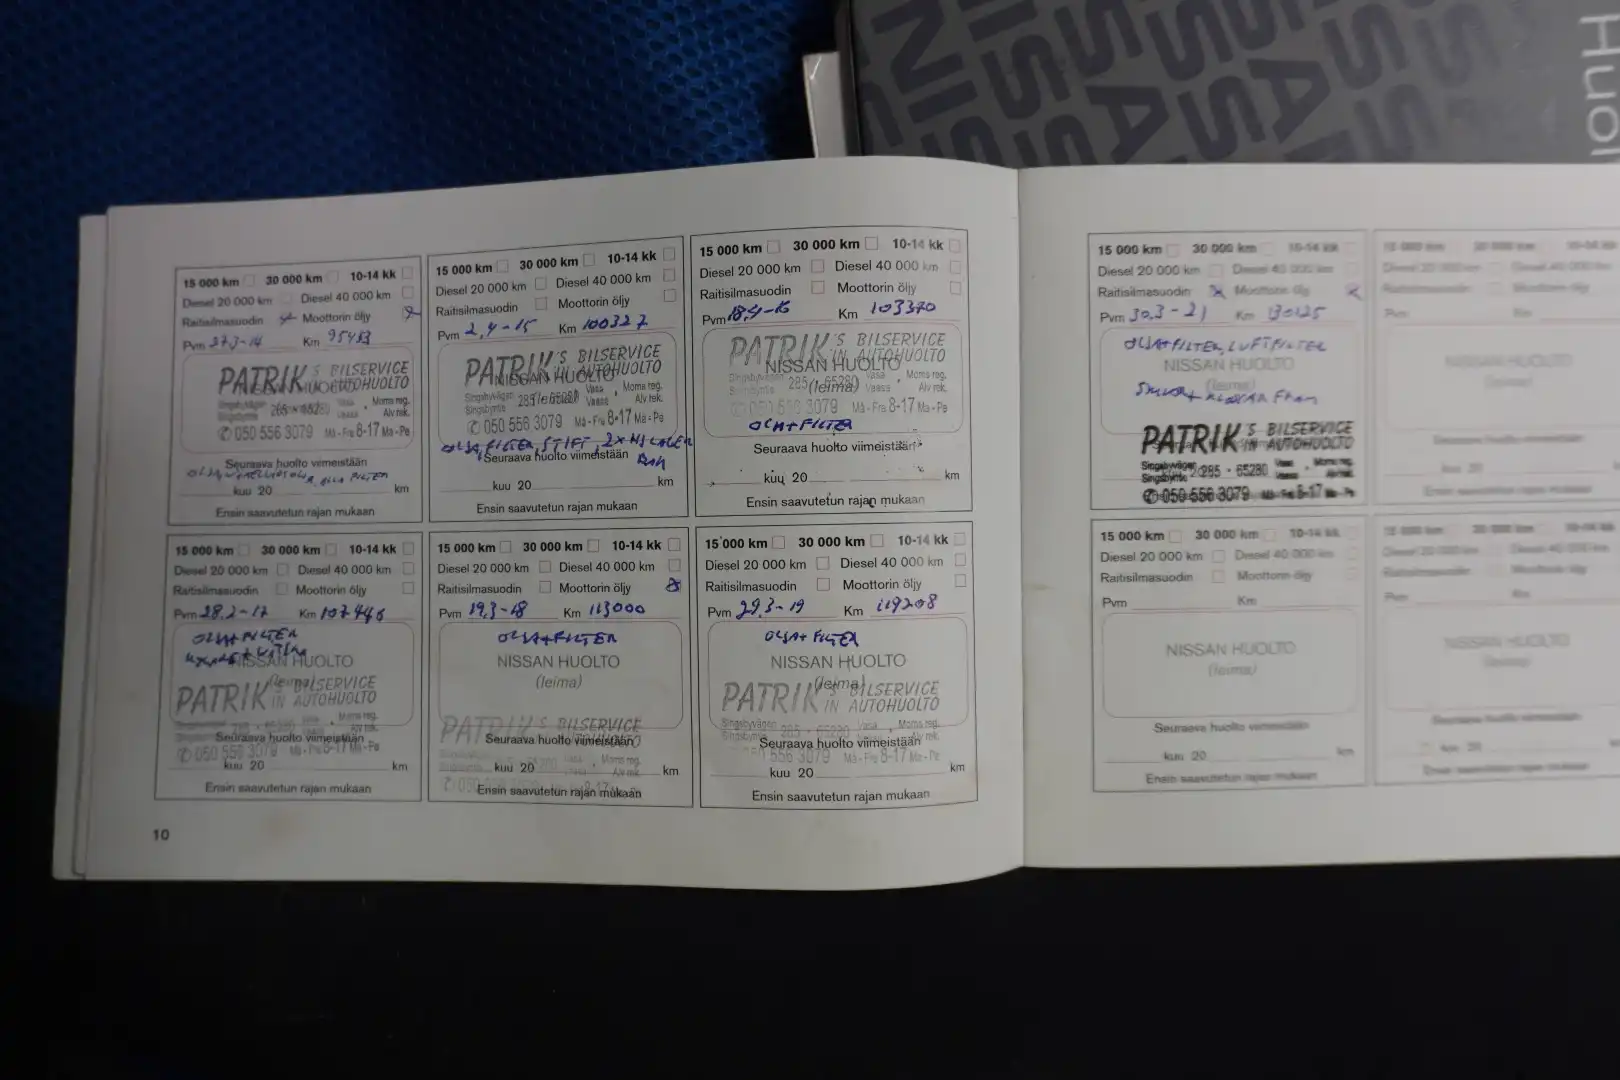 NISSAN
Huol
15 000 km 30 000 km 10-14 kk
Diesel 20 000 km Diesel 40 000 km
Raitisilmasuodin x Moottorin öljy x
Pvm 27.3-14 Km 95433
PATRIK'S BILSERVICE
NISSAN HUOLTO
IN AUTOHUOLTO
Singsbyvägen
Singsbyntie 285 - 65280 Vasa Vaasa , Moms reg. Alv rek.
✆ 050 556 3079 Må-Fre 8-17 Ma-Pe
Seuraava huolto viimeistään
kuu 20 km
Ensin saavutetun rajan mukaan
15 000 km 30 000 km 10-14 kk
Diesel 20 000 km Diesel 40 000 km
Raitisilmasuodin Moottorin öljy
Pvm 2,4-15 Km 100327
PATRIK'S BILSERVICE
IN AUTOHUOLTO
NISSAN HUOLTO
(leima)
Singsbyvägen
Singsbyntie 285 - 65280 Vasa Vaasa , Moms reg. Alv rek.
✆ 050 556 3079 Må-Fre 8-17 Ma-Pe
OLJA, FILTER, STIFT, 2x HJLAGER
BAK
Seuraava huolto viimeistään
kuu 20 km
Ensin saavutetun rajan mukaan
15 000 km 30 000 km 10-14 kk
Diesel 20 000 km Diesel 40 000 km
Raitisilmasuodin Moottorin öljy
Pvm 18,4-16 Km 103370
PATRIK'S BILSERVICE
IN AUTOHUOLTO
NISSAN HUOLTO
(leima)
Singsbyvägen
Singsbyntie 285 - 65280 Vasa Vaasa , Moms reg. Alv rek.
✆ 050 556 3079 Må-Fre 8-17 Ma-Pe
OLJA+FILTER
Seuraava huolto viimeistään
kuu 20 km
Ensin saavutetun rajan mukaan
15 000 km 30 000 km 10-14 kk
Diesel 20 000 km Diesel 40 000 km
Raitisilmasuodin Moottorin öljy
Pvm 28.2-17 Km 107446
OLJA+FILTER
NISSAN HUOLTO
(leima)
PATRIK'S BILSERVICE
IN AUTOHUOLTO
Seuraava huolto viimeistään
✆ 050 556 3079 Må-Fre 8-17 Ma-Pe
kuu 20 km
Ensin saavutetun rajan mukaan
15 000 km 30 000 km 10-14 kk
Diesel 20 000 km Diesel 40 000 km
Raitisilmasuodin Moottorin öljy x
Pvm 19,3-18 Km 113000
OLJA+FILTER
NISSAN HUOLTO
(leima)
PATRIK'S BILSERVICE
Seuraava huolto viimeistään
kuu 20 km
Ensin saavutetun rajan mukaan
15 000 km 30 000 km 10-14 kk
Diesel 20 000 km Diesel 40 000 km
Raitisilmasuodin Moottorin öljy
Pvm 29.3-19 Km 119208
OLJA+FILTER
NISSAN HUOLTO
(leima)
PATRIK'S BILSERVICE
IN AUTOHUOLTO
Singsbyvägen
Singsbyntie 285 - 65280 Vasa Vaasa , Moms reg. Alv rek.
Seuraava huolto viimeistään
556 3079 Må-Fre 8-17 Ma-Pe
kuu 20 km
Ensin saavutetun rajan mukaan
10
15 000 km 30 000 km 10-14 kk
Diesel 20 000 km Diesel 40 000 km
Raitisilmasuodin x Moottorin öljy x
Pvm 30.3-21 Km 130125
OLJA+FILTER, LUFTFILTER
NISSAN HUOLTO
(leima)
PATRIK'S BILSERVICE
IN AUTOHUOLTO
Singsbyvägen
Singsbyntie 285 - 65280 Vasa Vaasa , Moms reg. Alv rek.
✆ 050 556 3079 Må-Fre 8-17 Ma-Pe
15 000 km 30 000 km 10-14 kk
Diesel 20 000 km Diesel 40 000 km
Raitisilmasuodin Moottorin öljy
Pvm Km
NISSAN HUOLTO
(leima)
Seuraava huolto viimeistään
kuu 20 km
Ensin saavutetun rajan mukaan
15 000 km 30 000 km 10-14 kk
Diesel 20 000 km Diesel 40 000 km
Raitisilmasuodin Moottorin öljy
Pvm Km
NISSAN HUOLTO
(leima)
Seuraava huolto viimeistään
kuu 20 km
Ensin saavutetun rajan mukaan